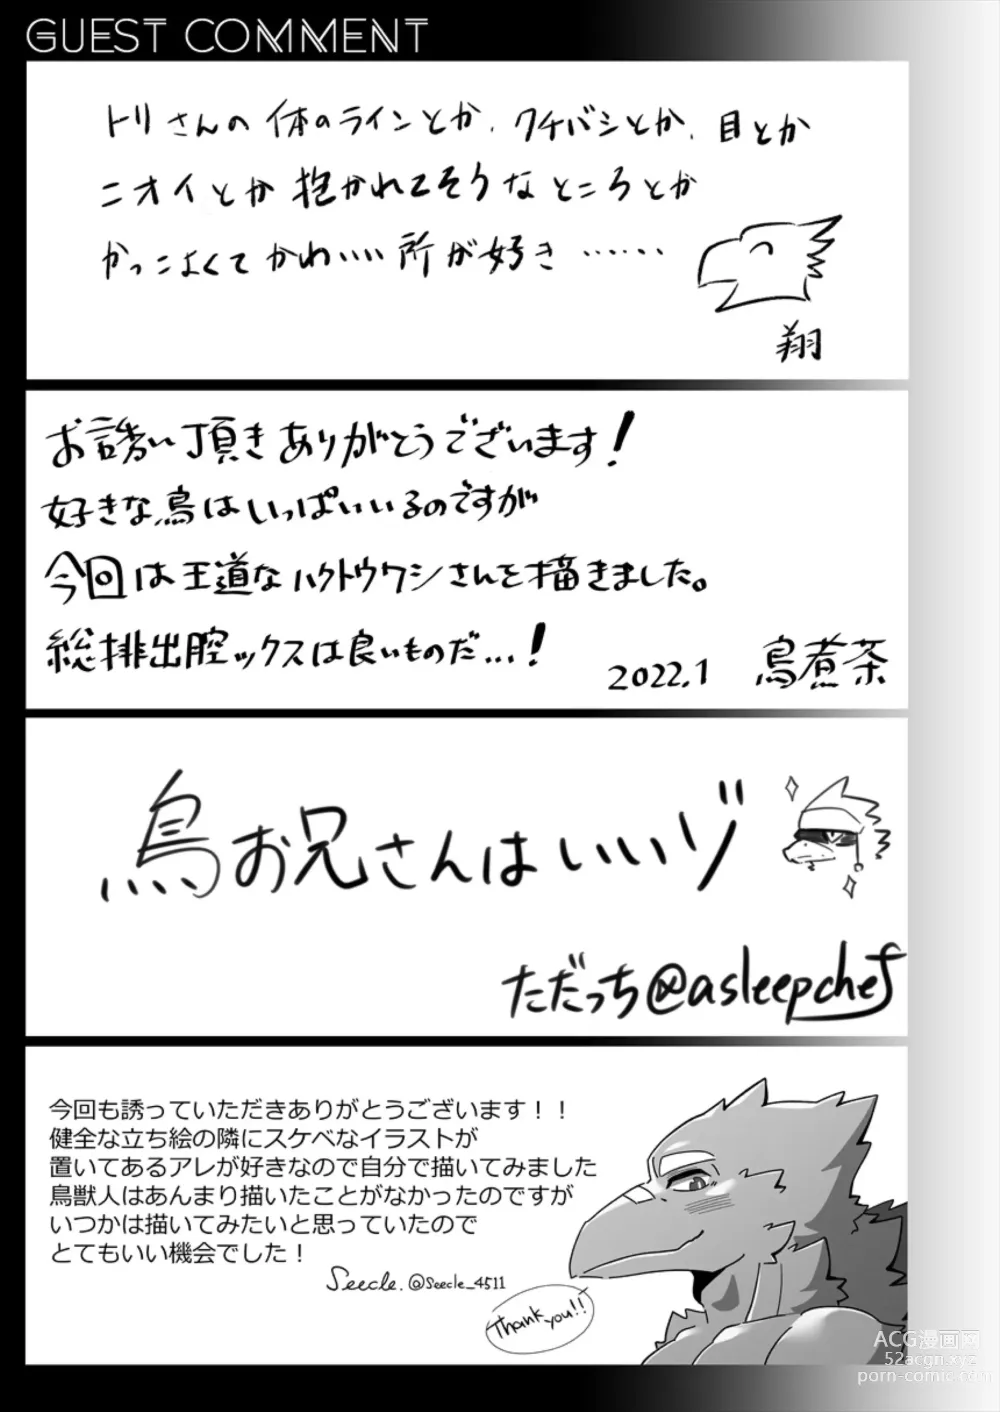 GUEST COMMENT
トリさんの体のラインとか、クチバシとか、目とか
ニオイとか抱かれてそうなところとか
かっこよくてかわいい所が好き……
翔
お誘い頂きありがとうございます!
好きな鳥はいっぱいいるのですが
今回は王道なハクトウワシさんを描きました。
総排出腔ックスは良いものだ…!
2022.1 鳥煮茶
鳥お兄さんはいいゾ
ただっち@asleepchef
今回も誘っていただきありがとうございます！！
健全な立ち絵の隣にスケベなイラストが
置いてあるアレが好きなので自分で描いてみました
鳥獣人はあんまり描いたことがなかったのですが
いつかは描いてみたいと思っていたので
とてもいい機会でした！
Seecle. @Seecle_4511
Thank you!!
ACG漫画网
52acgri.xyz
porn-comic.com